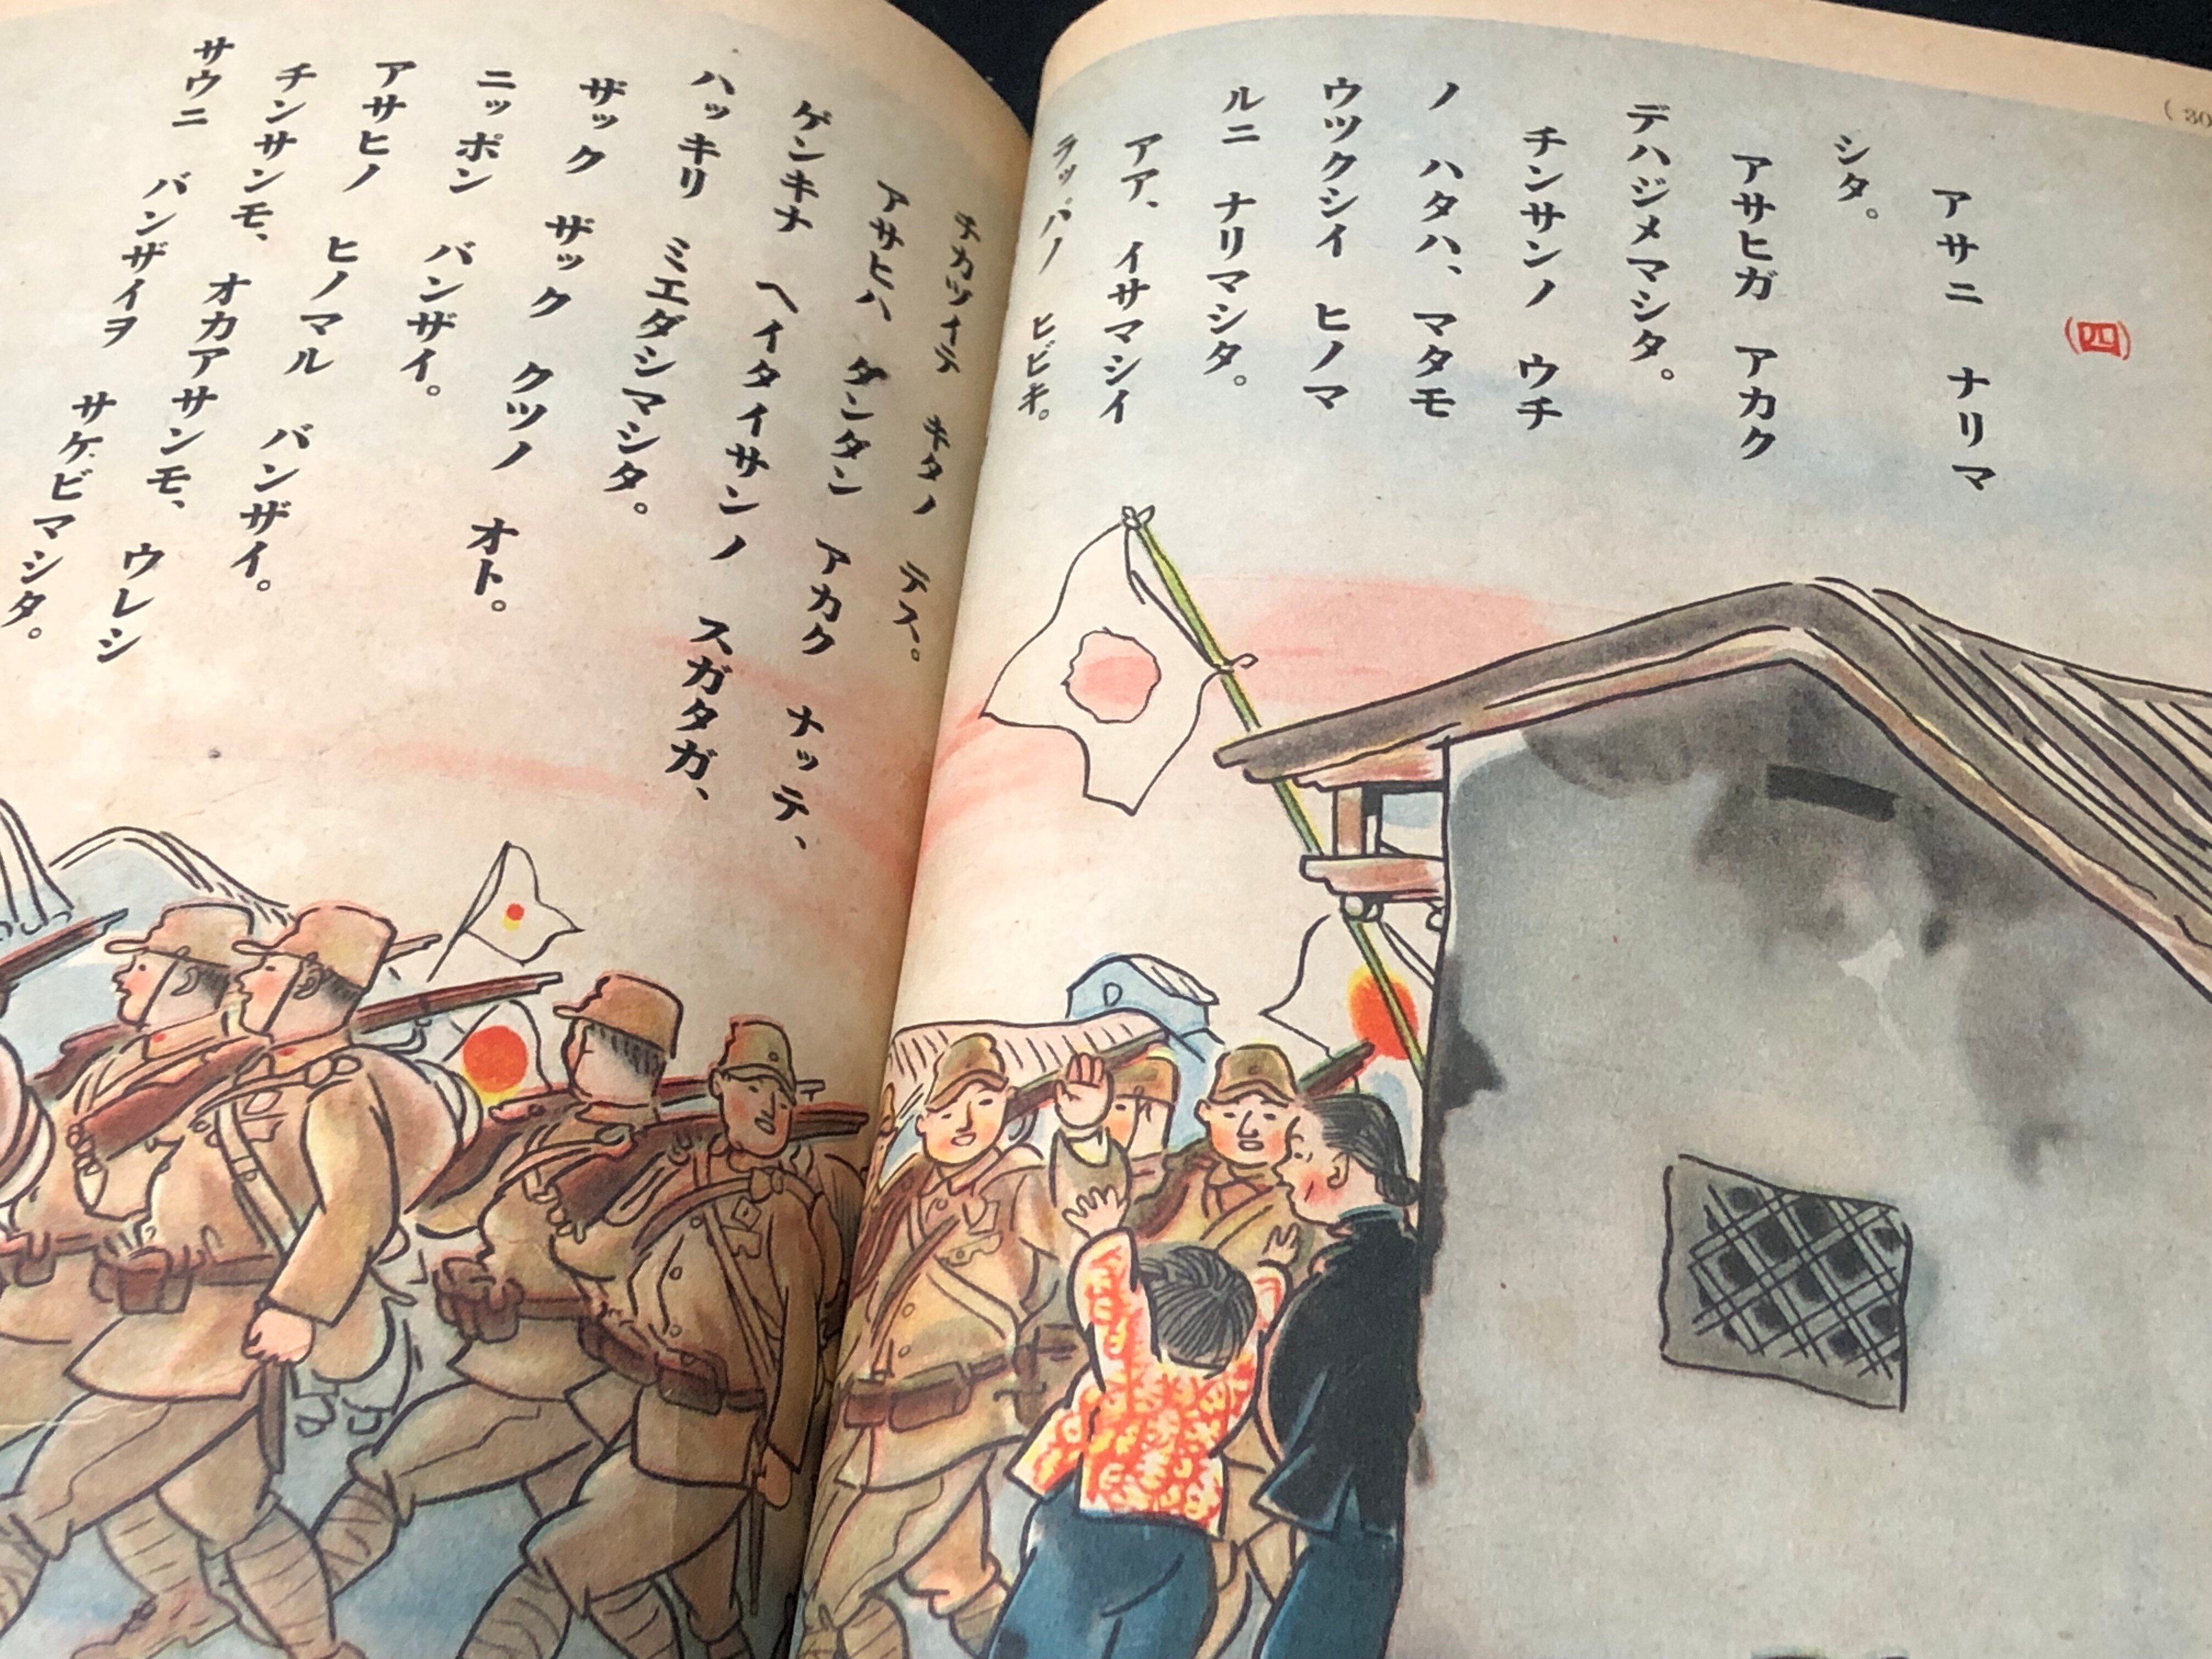 (30
(四)
アサニ ナリマ
シタ。
アサヒガ アカク
デハジメマシタ。
チンサンノ ウチ
ノ ハタハ、マタモ
ウツクシイ ヒノマ
ルニ ナリマシタ。
アア、イサマシイ
ラッパノ ヒビキ。
チカヅイテ キタノ デス。
アサヒハ ダンダン アカク ナッテ、
ゲンキナ ヘイタイサンノ スガタガ、
ハッキリ ミエダシマシタ。
ザック ザック クツノ オト。
ニッポン バンザイ。
アサヒノ ヒノマル バンザイ。
チンサンモ、オカアサンモ、ウレシ
サウニ バンザイヲ サケビマシタ。